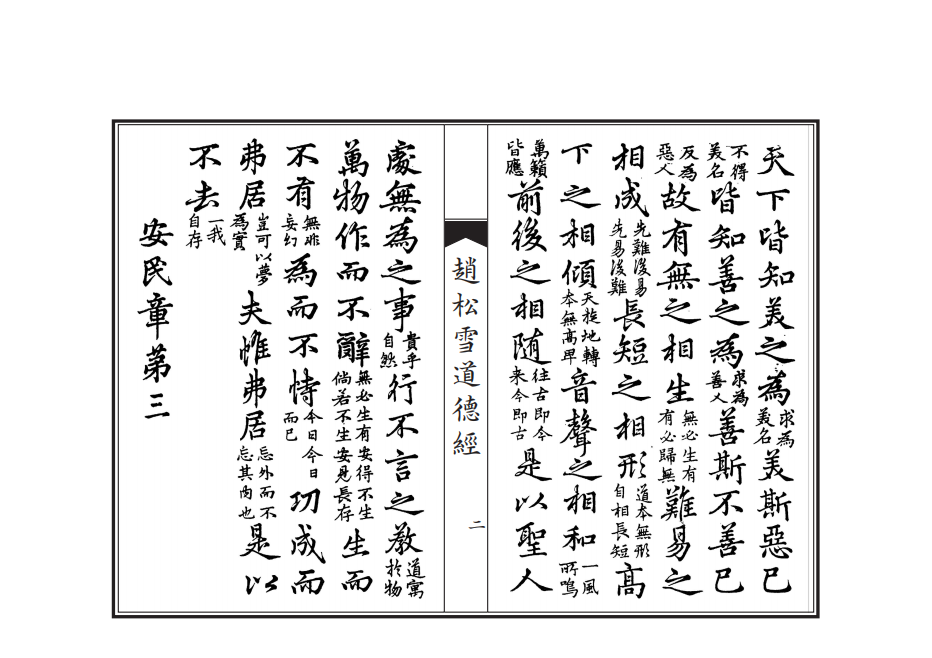 天下皆知美之為求為美名美斯惡已
不得美名皆知善之為求為善人善斯不善已
反為惡人故有無之相生無必生有有必歸無難易之
相成先難後易先易後難長短之相形道本無形自相長短高
下之相傾天旋地轉本無高卑音聲之相和一風所鳴
萬籟皆應前後之相隨往古即今来今即古是以聖人
趙松雪道德經
二
處無為之事貴乎自然行不言之教道寓於物
萬物作而不辭無必生有安得不生倘若不生安見長存生而
不有無非妄幻為而不恃今日今日而已功成而
弗居豈可以夢為實夫惟弗居忘外而不忘其内也是以
不去一我自存
安民章第三